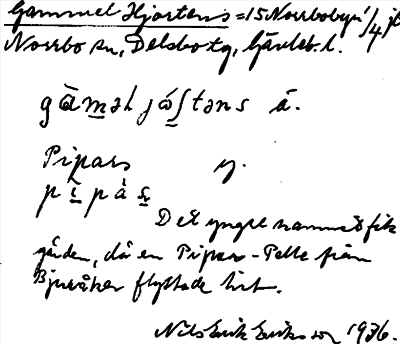 Gammel Hjortens = 15 Norrbobyn 1/4 jb
Norrbo sn, Delsbo tg, Gävleb. l.
gàməl jóʃtəns ä.
Pipars y.
pìpàṣ
Det yngst namnet fik
gården, då en Pipar-Pelle från
Bjuråker flyttade hit.
Nils Erik Eriksson 1936.